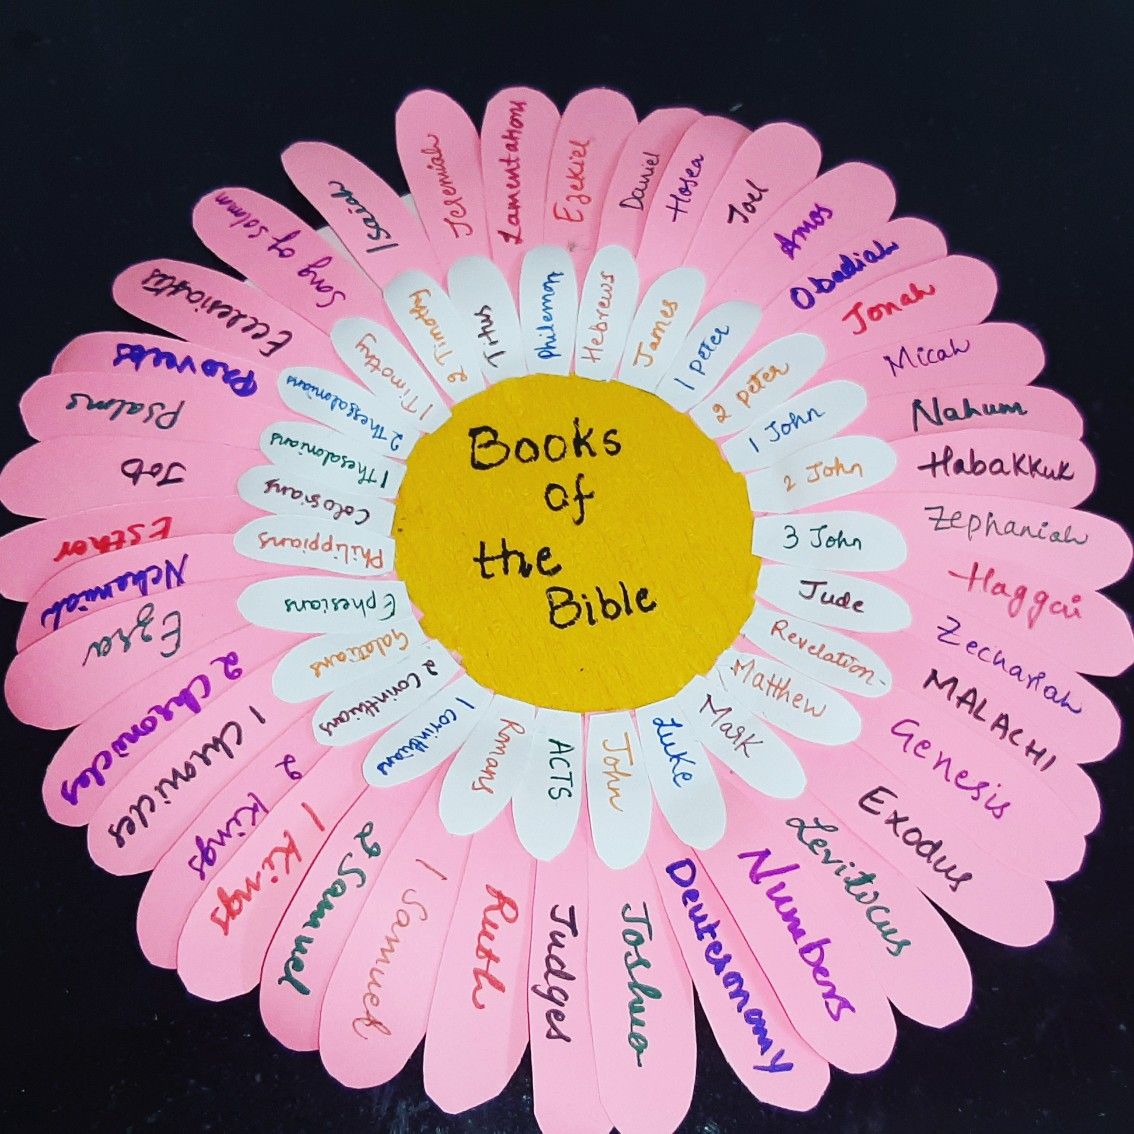 Books
of
the
Bible
Genesis
Exodus
Levitocus
Numbers
Deuteronomy
Joshua
Judges
Ruth
1 Samuel
2 Samuel
1 Kings
2 Kings
1 Chronicles
2 Chronicles
Ezra
Nehemiah
Esther
Job
Psalms
Proverbs
Ecclesiastes
Song of Solmn
Isaiah
Jeremiah
Lamentations
Ezekiel
Daniel
Hosea
Joel
Amos
Obadiah
Jonah
Micah
Nahum
Habakkuk
Zephaniah
Haggai
Zechariah
MALACHI
Matthew
Mark
Luke
John
ACTS
Romans
1 corinthians
2 Corinthians
Galatians
Ephesians
Philippians
Colosians
1 Thesalonians
2 Thessalonians
1 Timothy
2 Timothy
Titus
Philemon
Hebrews
James
1 Peter
2 peter
1 John
2 John
3 John
Jude
Revelation-